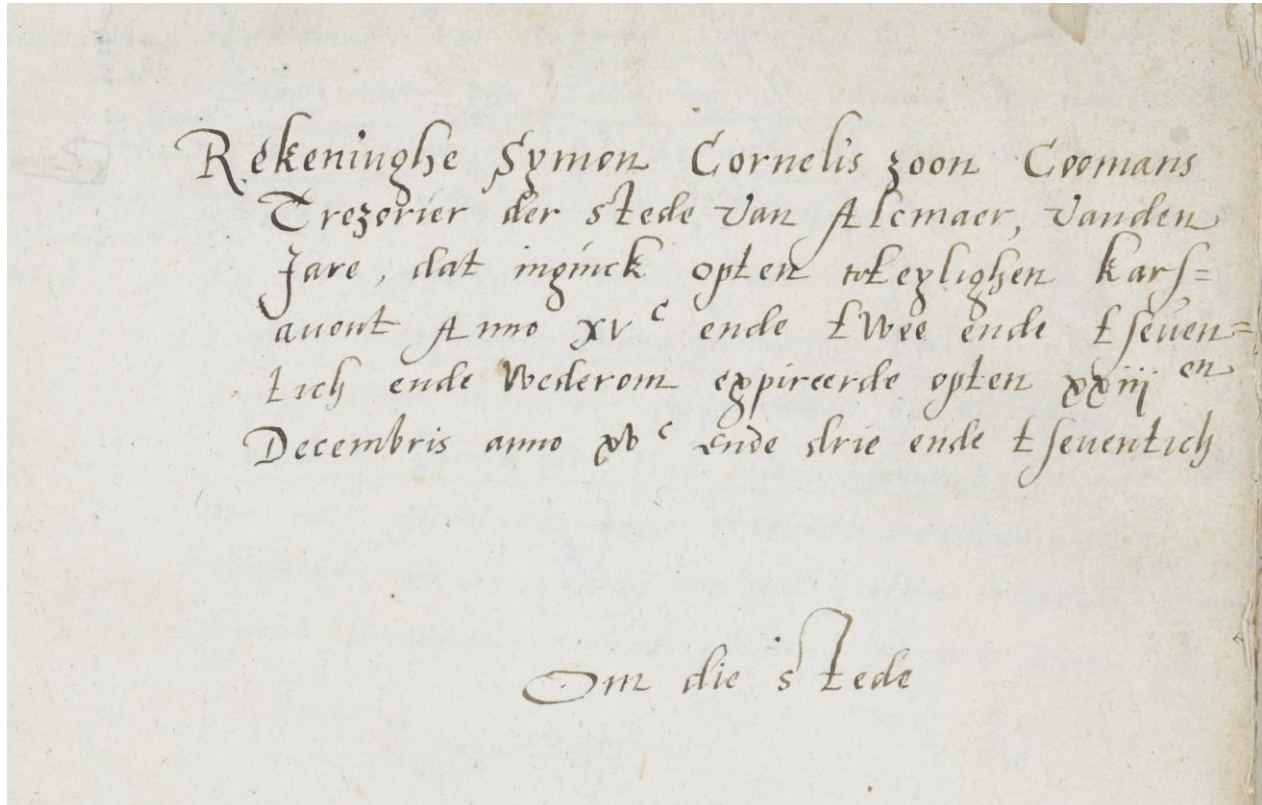 Rekeninghe Symon Cornelis zoon Coomans
Trezorier der stede van Alcmaer, vanden
Jare, dat inginck opten heylighen kars=
auont Anno xvᶜ ende twee ende tseuen=
tich ende wederom expireerde opten xxiijᵉⁿ
Decembris anno xvᶜ ende drie ende tseuentich
Om die stede